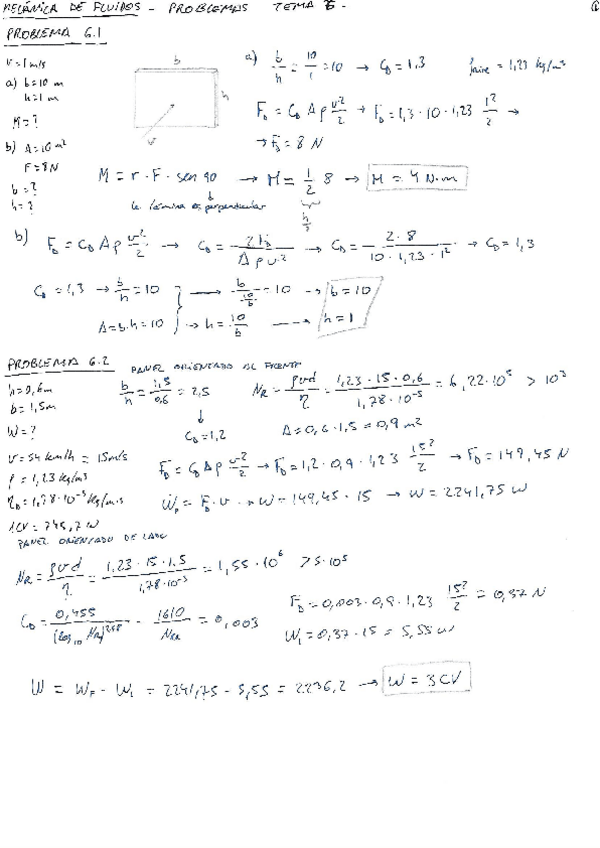 MECÁNICA DE FLUIDOS - PROBLEMAS TEMA 6 -
PROBLEMA 6.1
v = 1 m/s
a) b = 10 m
h = 1 m
M = ?
b) A = 10 m²
F = 8 N
b = ?
h = ?
b
h
v
a) b/h = 10/1 = 10 → C_D = 1,3 ρaire = 1,23 kg/m³
F_D = C_D A ρ v²/2 → F_D = 1,3 · 10 · 1,23 1²/2 →
→ F_D = 8 N
M = r · F · sen 90 → M = 1/2 8 → M = 4 N·m
la lámina es perpendicular
h/2
b) F_D = C_D A ρ v²/2 → C_D = 2F_D/(A ρ v²) → C_D = 2·8/(10 · 1,23 · 1²) → C_D = 1,3
C_D = 1,3 → b/h = 10 → b/(10/b) = 10 → b = 10
A = b·h = 10 → h = 10/b → h = 1
PROBLEMA 6.2 PANEL ORIENTADO AL FRENTE
h = 0,6m
b = 1,5m
W = ?
v = 54 km/h = 15 m/s
ρ = 1,23 kg/m³
η_D = 1,78·10⁻⁵ kg/m·s
1CV = 745,7 W
b/h = 1,5/0,6 = 2,5 N_R = ρvd/η = 1,23 · 15 · 0,6/1,78·10⁻⁵ = 6,22·10⁵ > 10³
C_D = 1,2 A = 0,6 · 1,5 = 0,9 m²
F_D = C_D A ρ v²/2 → F_D = 1,2 · 0,9 · 1,23 15²/2 → F_D = 149,45 N
W_F = F_D · v → W = 149,45 · 15 → W = 2241,75 W
PANEL ORIENTADO DE LADO
N_R = ρvd/η = 1,23 · 15 · 1,5/1,78·10⁻⁵ = 1,55·10⁶ > 5·10⁵
C_D = 0,455/(log₁₀ N_R)^2,58 - 1610/N_R = 0,003
F_D = 0,003 · 0,9 · 1,23 15²/2 = 0,37 N
W_L = 0,37 · 15 = 5,55 W
W = W_F - W_L = 2241,75 - 5,55 = 2236,2 → W = 3 CV